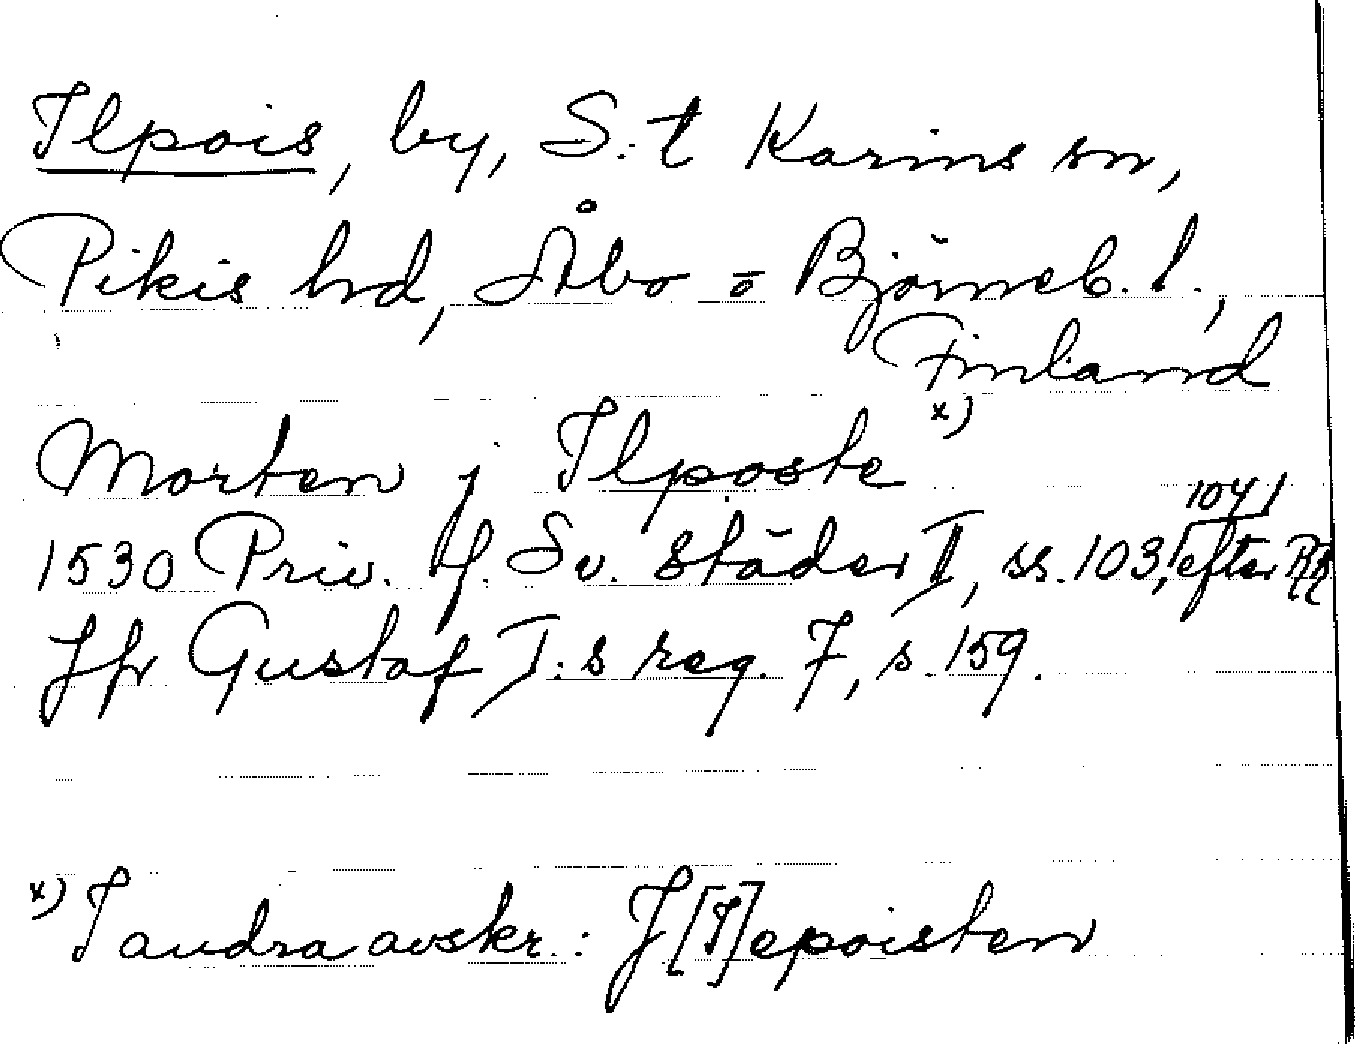 Ilpois, by, S:t Karins sn,
Pikis hrd, Åbo o Björneb. l.,
Finland
Morten j Ilposte x)
1530 Priv. f. Sv. städer II, ss. 103, 104 [efter RR]
Jfr Gustaf I:s reg. 7, s. 159.
x) I andra avskr.: J[I]epoisten